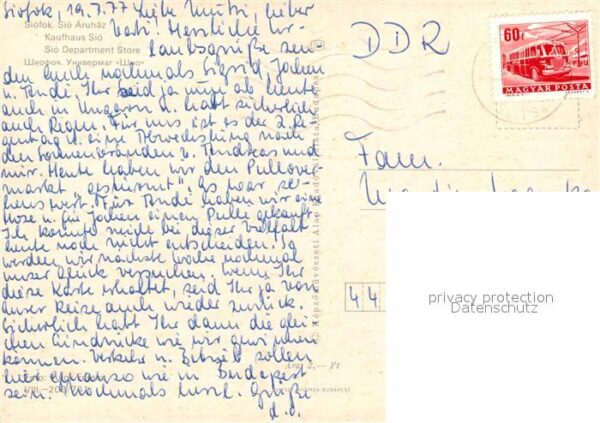 Siófok, 19.7.77 Liebe Mutti, lieber
Vati! Herzliche Ur-
laubsgrüße sen-
den Euch nochmals Sigrid, Jochen
u. Ihr seid ja nun ab heute
auch in Ungarn u. habt sicherlich
auch Regen. Für uns ist es der 2. Re-
gentag u. eine Abwechslung nach
den Sonnenbränden v. Andreas und
mir. Heute haben wir den Pullover-
markt "gestürmt". Es war se-
henswert. Für haben wir eine
Hose u. für Jochen einen Pulli gekauft.
Ich konnte mich bei dieser Vielfalt
heute noch nicht entscheiden. So
werden wir nächste Woche nochmal
unser Glück versuchen. Wenn Ihr
diese Karte erhaltet, seid Ihr ja von
Eurer Reise auch wieder zurück.
Sicherlich habt Ihr dann die glei-
chen Eindrücke wie wir gewinnen
können. Verkehr u. sollen
hier genauso wie in Budapest
sein. Nochmals herzl. Grüße
d. O.
Siófok. Sió Áruház
Kaufhaus Sió
Sió Department Store
Шиофок. Универмаг «Шио»
DDR
60f
MAGYAR POSTA
Fam.
44
privacy protection
Datenschutz
Ára: 2,— Ft
BUDAPEST